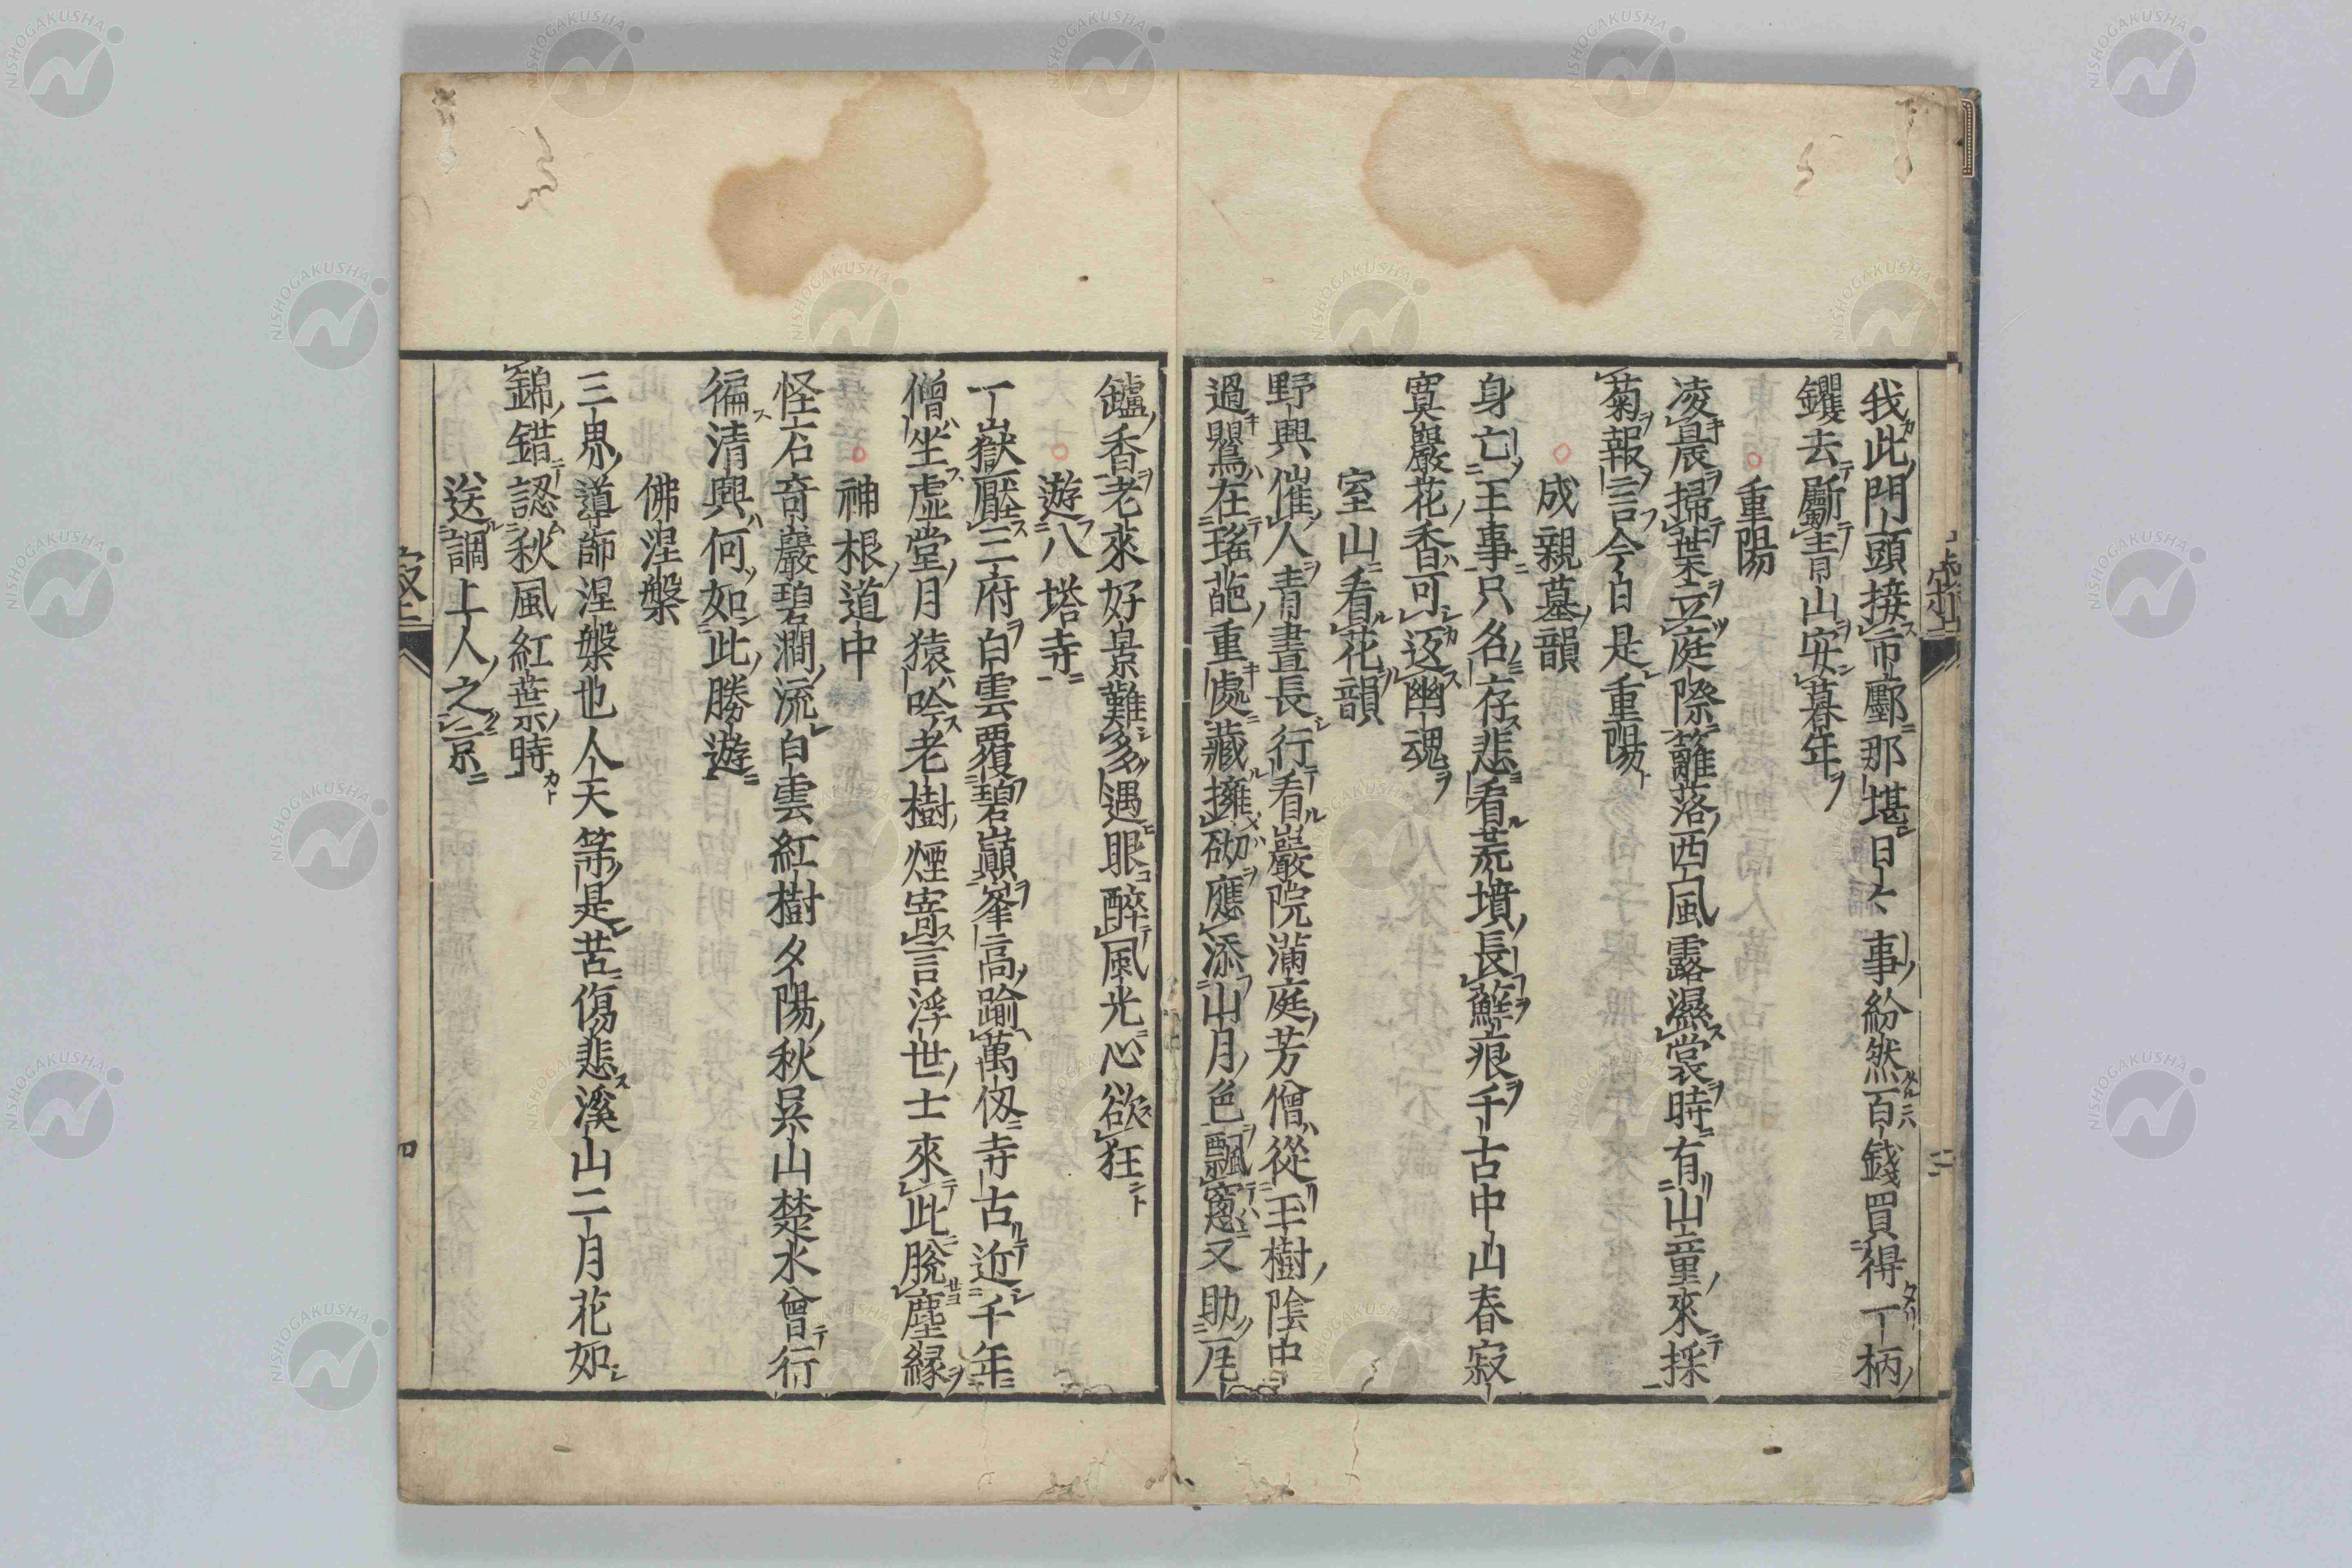 我此門頭接市鄽那堪日々事紛然百錢買得一柄
钁去斸靑山安暮年
重陽
凌晨掃葉立庭際籬落西風露濕裳時有山童來採
菊報言今日是重陽
成親墓韻
身亡王事只名存悲看荒墳長蘚痕千古中山春寂
寞巖花香可返幽魂
室山看花韻
野興催人靑晝長行看巖院滿庭芳僧從玉樹陰中
過鶯在瑤葩重處藏擁砌應添山月色飄窻又助一爐
鑪香老來好景難多遇眼醉風光心欲狂
遊八塔寺
一嶽壓三府白雲覆碧巓峯高踰萬仭寺古近千年
僧坐虚堂月猿吟老樹煙寄言浮世士來此脫塵緣
神根道中
怪石奇巖碧澗流白雲紅樹夕陽秋吳山楚水曾行
徧淸興何如此勝遊
佛涅槃
三界導師涅槃也人天等是苦傷悲溪山二月花如
錦錯認秋風紅葉時
送調上人之京
NISHOGAKUSHA